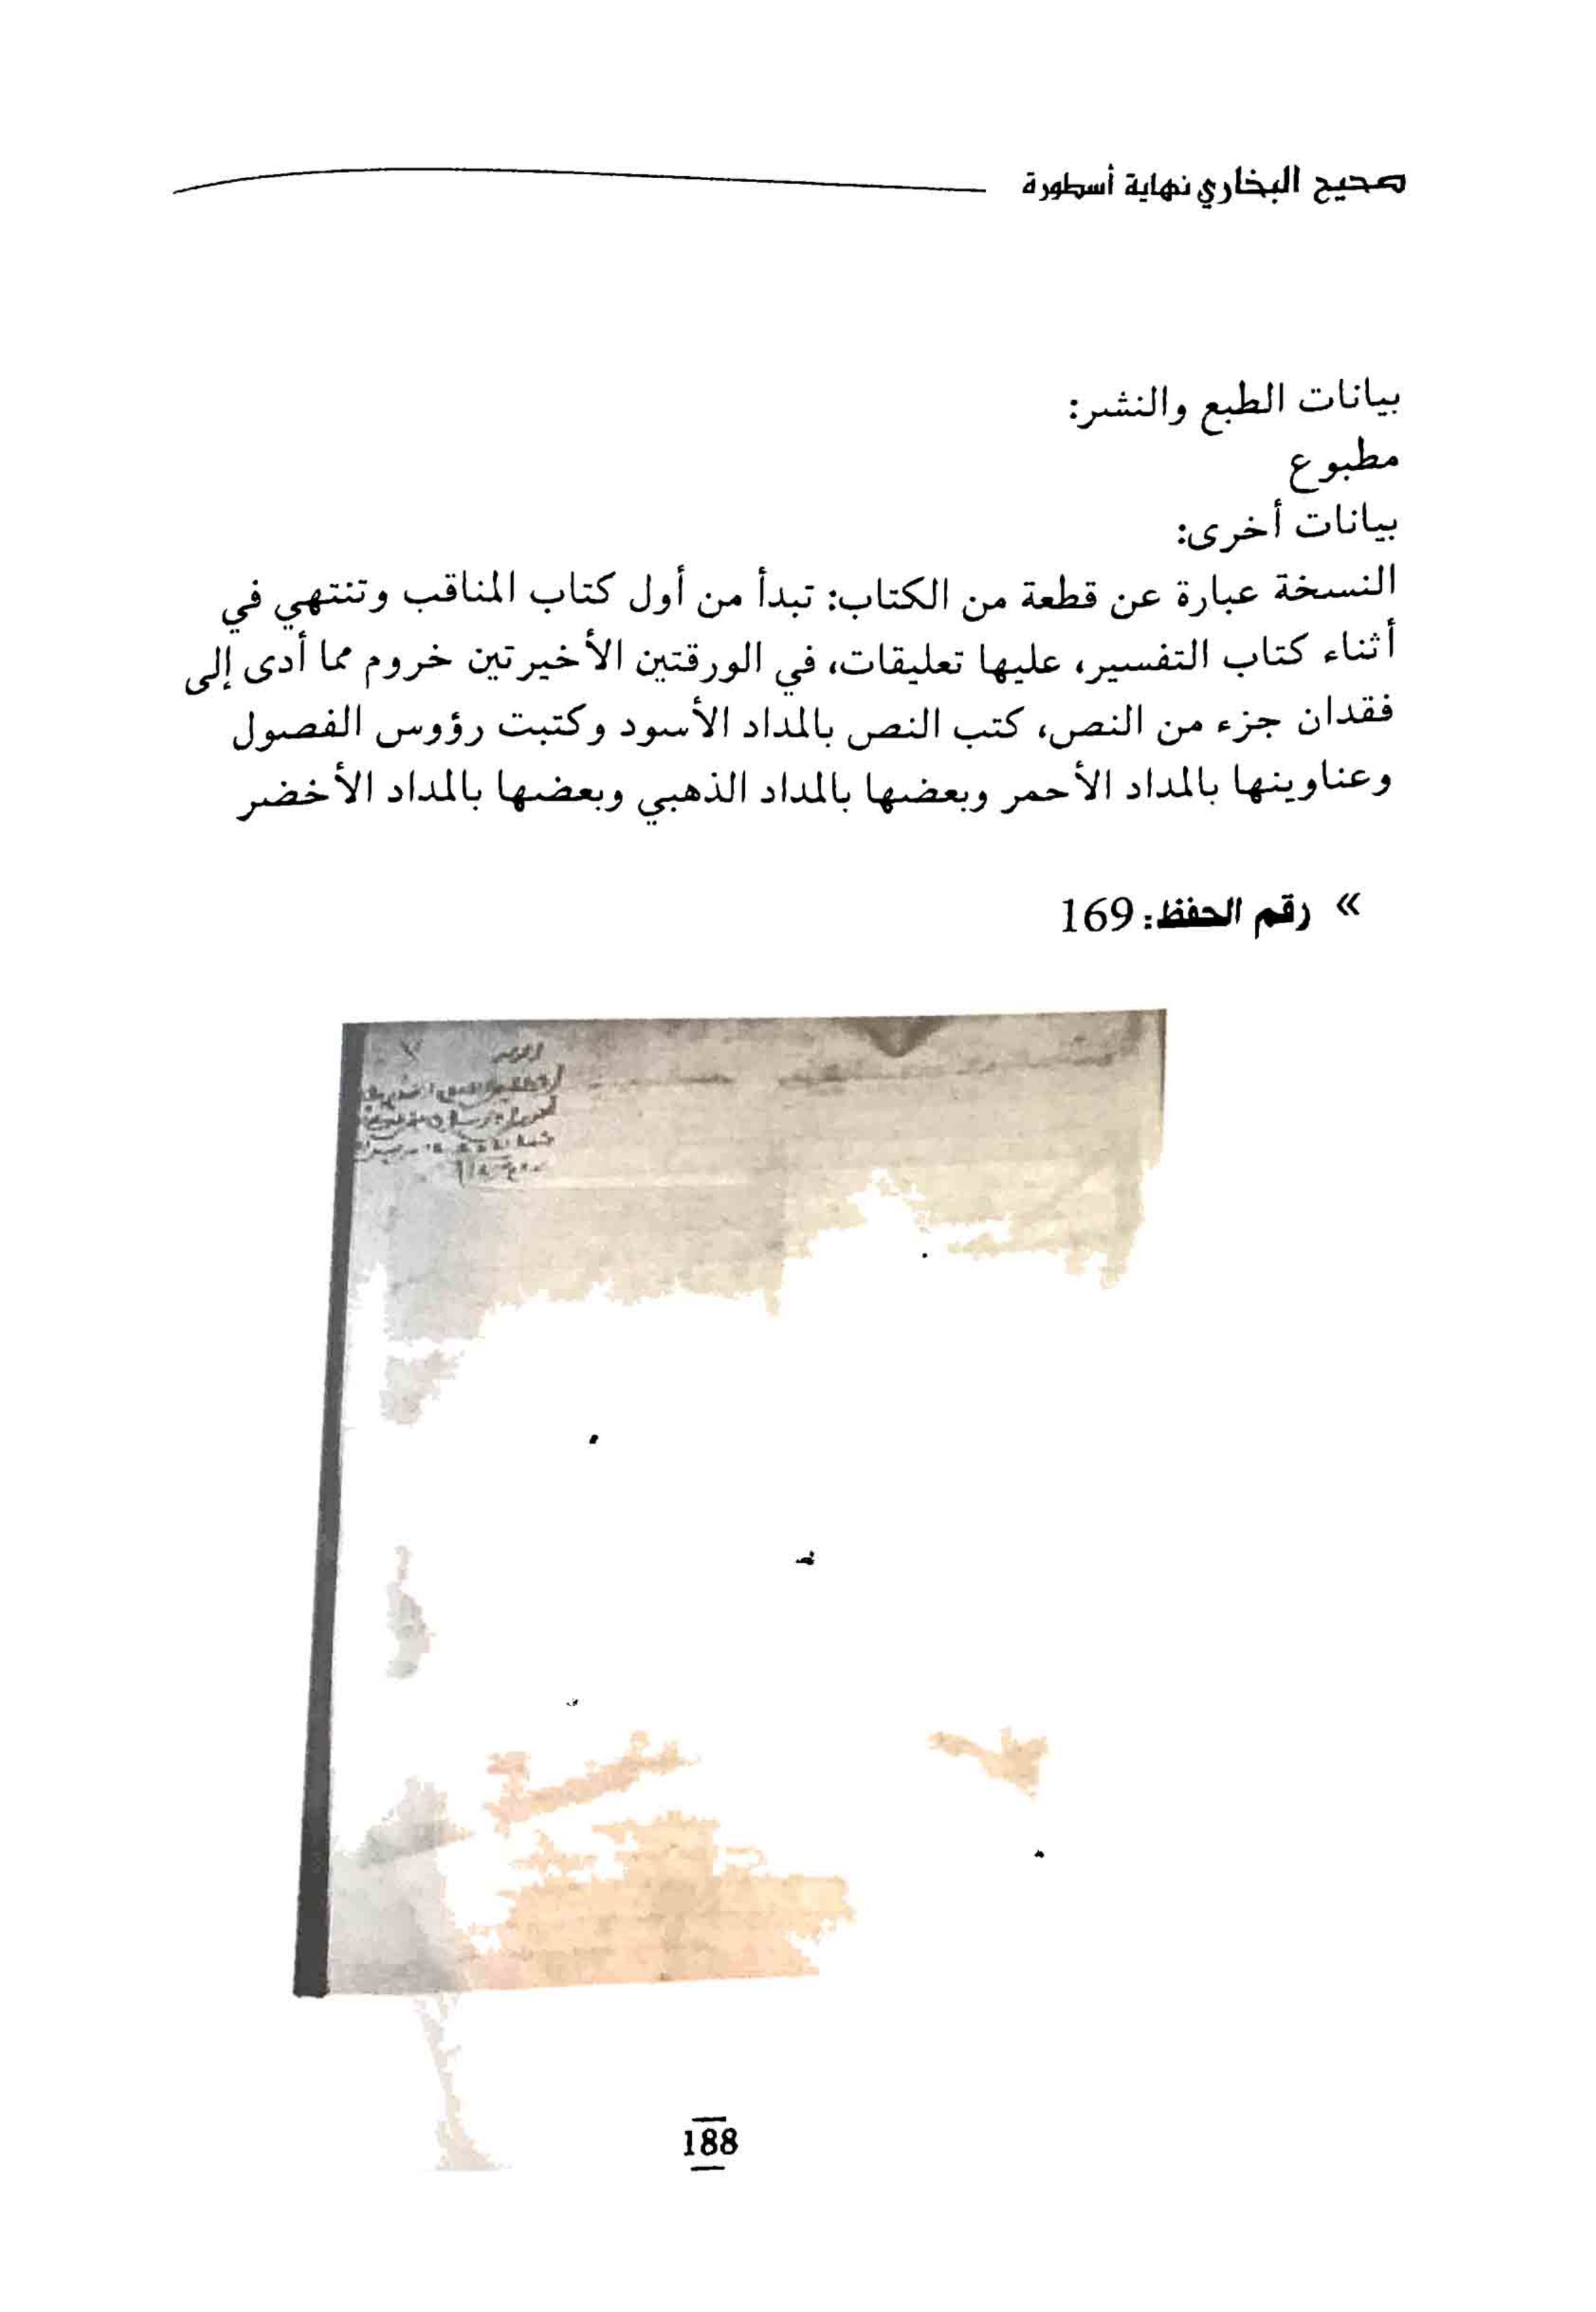 صحيح البخاري نهاية أسطورة
بيانات الطبع والنشر:
مطبوع
بيانات أخرى:
النسخة عبارة عن قطعة من الكتاب: تبدأ من أول كتاب المناقب وتنتهي في
أثناء كتاب التفسير، عليها تعليقات، في الورقتين الأخيرتين خروم مما أدى إلى
فقدان جزء من النص، كتب النص بالمداد الأسود وكتبت رؤوس الفصول
وعناوينها بالمداد الأحمر وبعضها بالمداد الذهبي وبعضها بالمداد الأخضر
» رقم الحفظ: 169
188